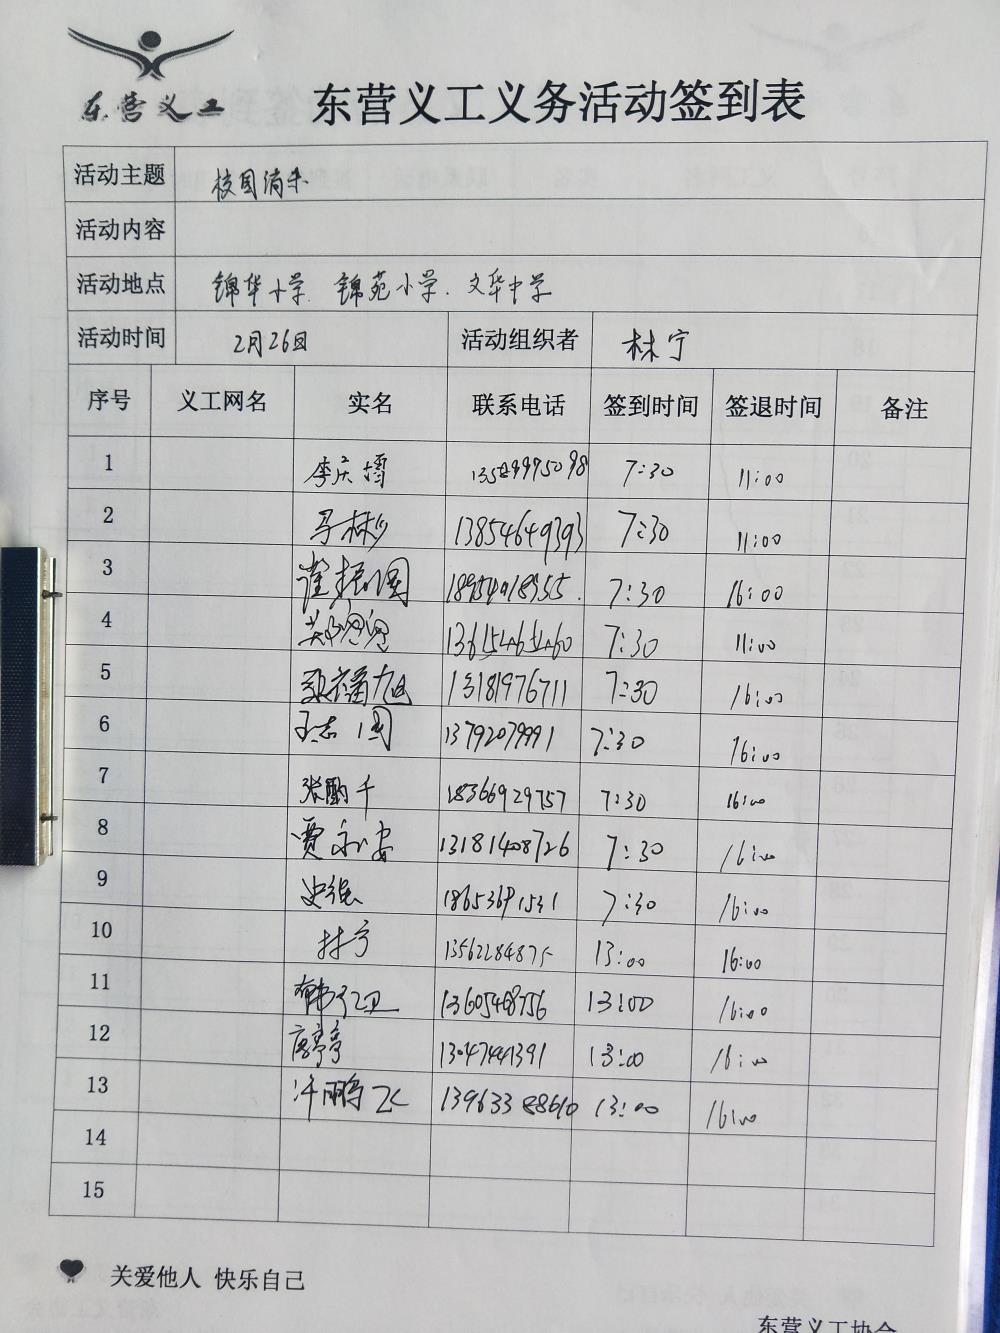 东营义工 东营义工义务活动签到表
活动主题 校园清朱
活动内容
活动地点 锦华小学、锦苑小学、文华中学
活动时间 2月26日 活动组织者 林宁
序号 义工网名 实名 联系电话 签到时间 签退时间 备注
1 李庆增 7:30 11:00
2 马彬彬 13854649393 7:30 11:00
3 崔振国 18954018955. 7:30 16:00
4 13615464460 7:30 11:00
5 13181976711 7:30 16:00
6 王志国 13792079991 7:30 16:00
7 张千 18366929757 7:30 16:00
8 贾永安 13181408726 7:30 16:00
9 史强 18653691531 7:30 16:00
10 林宁 13562284875 13:00 16:00
11 韩红卫 13605468756 13:00 16:00
12 唐亭亭 13047441391 13:00 16:00
13 许鹏飞 13963388610 13:00 16:00
14
15
关爱他人 快乐自己
东营义工协会